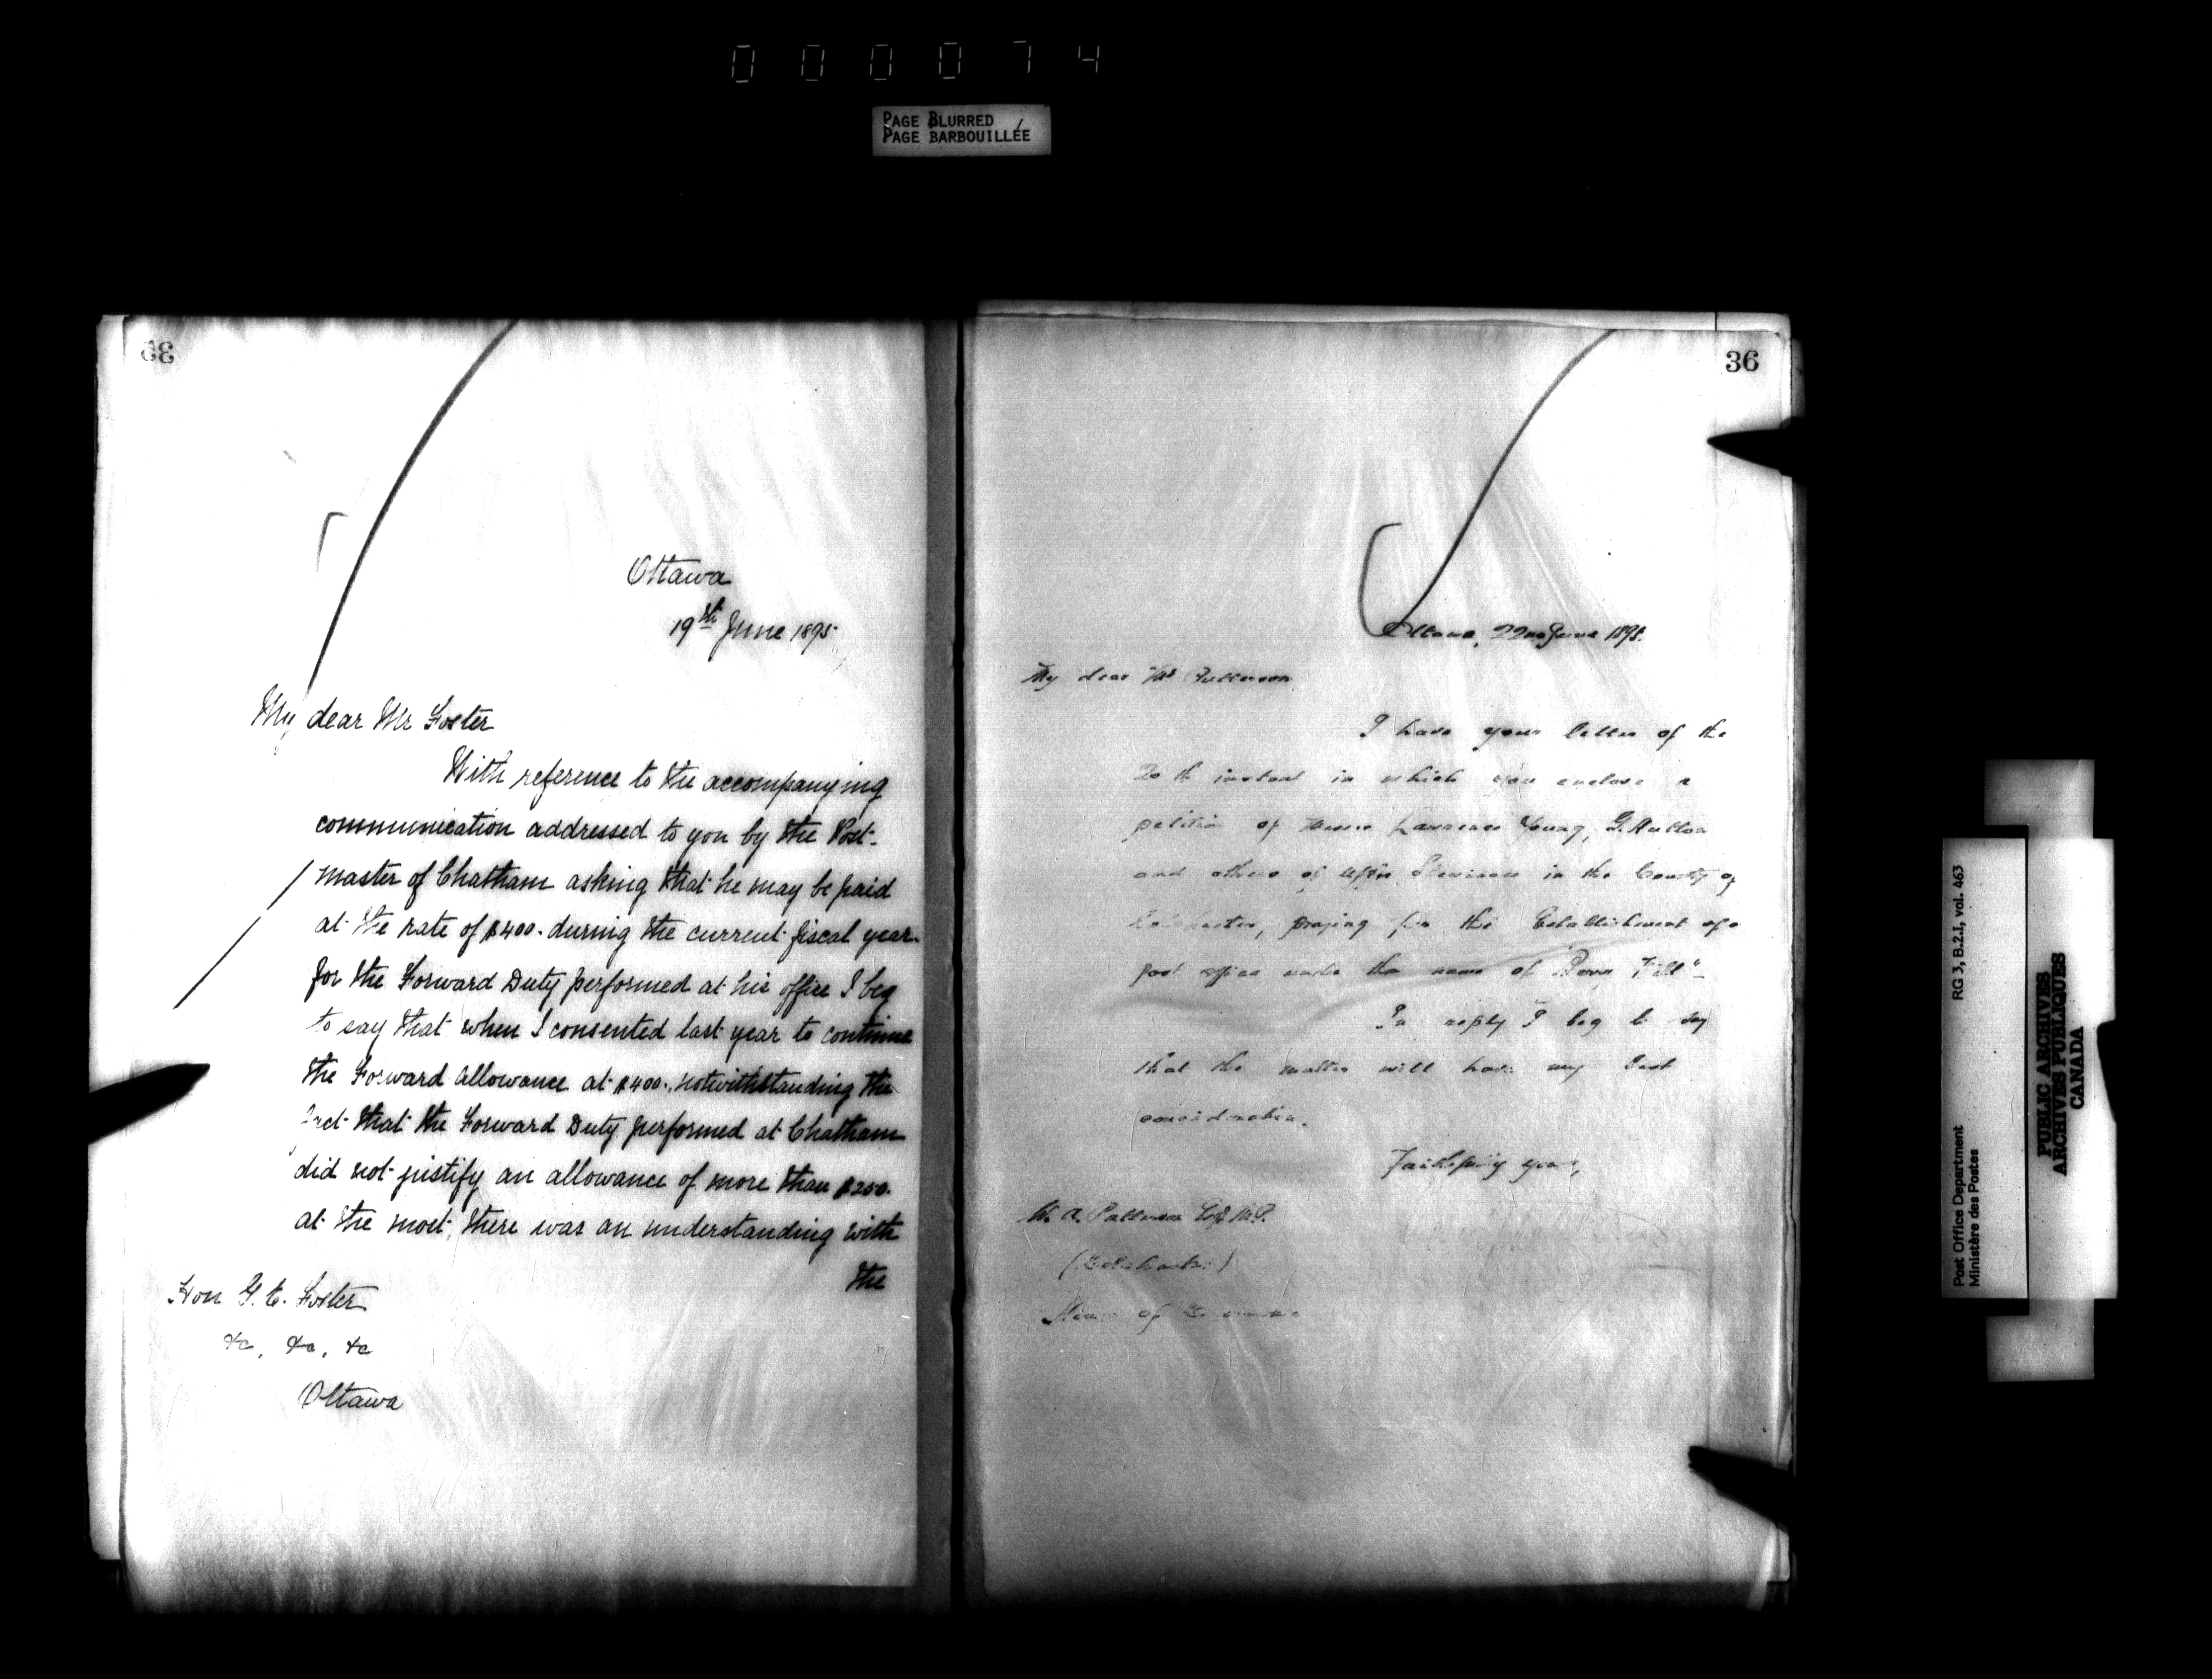 000074
PAGE BLURRED
PAGE BARBOUILLÉE
Ottawa
19th June 1895
My dear Mr Foster
With reference to the accompanying
communication addressed to you by the Post-
master of Chatham asking that he may be paid
at the rate of $400. during the current fiscal year
for the Forward Duty performed at his office I beg
to say that when I consented last year to continue
the Forward allowance at $400. notwithstanding the
fact that the Forward Duty performed at Chatham
did not justify an allowance of more than $200.
at the most, there was an understanding with
the
Hon G. E. Foster
&c, &c, &c
Ottawa
36
Ottawa, 22nd June 1895.
My dear Mr Patterson
I have your letter of the
20th instant in which you enclose a
petition of Messrs Lawrence Young, G.
and others of in the County of
Colchester, praying for the Establishment of a
post office under the name of
In reply I beg to say
that the matter will have my best
consideration.
Faithfully yours,
W. A. Patterson Esq M.P.
(Colchester)
of
RG 3, B.2.I, vol. 463
Post Office Department
Ministère des Postes
PUBLIC ARCHIVES
ARCHIVES PUBLIQUES
CANADA